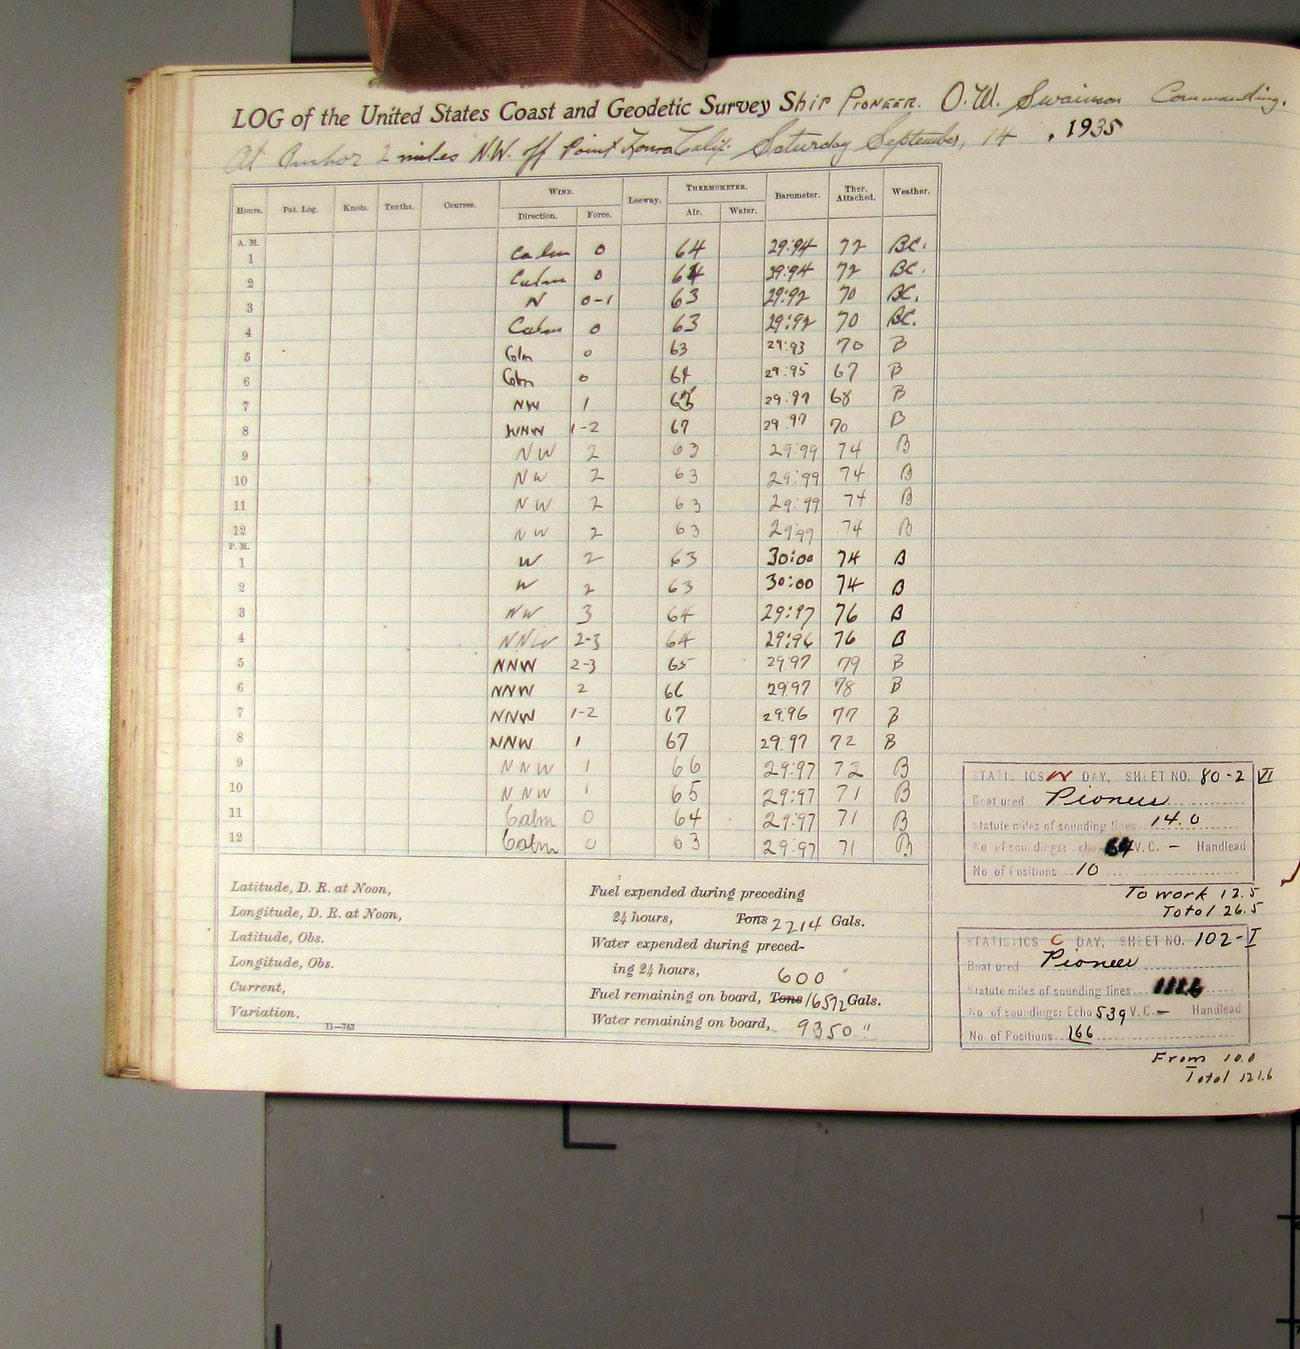 LOG of the United States Coast and Geodetic Survey Ship PIONEER. O.W. Swainson Commanding.
At Anchor 2 miles N.W. off Point Calif. Saturday September, 14, 1935
Hours. Pat. Log. Knots. Tenths. Courses. WIND. Direction. Force. Leeway. THERMOMETER. Air. Water. Barometer. Ther. Attached. Weather.
A. M.
1 Calm 0 64 29:94 72 BC.
2 Calm 0 64 29:94 72 BC.
3 N 0-1 63 29:92 70 BC.
4 Calm 0 63 29:92 70 BC.
5 Clm 0 63 29:93 70 B
6 Clm 0 64 29:95 67 B
7 NW 1 29.97 68 B
8 WNW 1-2 67 29.97 70 B
9 NW 2 63 29:99 74 B
10 NW 2 63 29:99 74 B
11 NW 2 63 29:99 74 B
12 NW 2 63 29:99 74 B
P. M.
1 W 2 63 30:00 74 B
2 W 2 63 30:00 74 B
3 NW 3 64 29:97 76 B
4 NNW 2-3 64 29:96 76 B
5 NNW 2-3 65 29.97 79 B
6 NNW 2 66 29.97 78 B
7 NNW 1-2 67 29.96 77 B
8 NNW 1 67 29.97 72 B
9 NNW 1 66 29:97 72 B
10 NNW 1 65 29:97 71 B
11 Calm 0 64 29:97 71 B
12 Calm 0 63 29:97 71 B
Latitude, D. R. at Noon,
Longitude, D. R. at Noon,
Latitude, Obs.
Longitude, Obs.
Current,
Variation,
11—763
Fuel expended during preceding
24 hours, Tons 2214 Gals.
Water expended during preced-
ing 24 hours, 600 "
Fuel remaining on board, Tons 16572 Gals.
Water remaining on board, 9350 "
STATISTICS W DAY, SHEET NO. 80-2 VI
Boat used Pioneer
Statute miles of sounding lines 14.0
No of soundings: Echo 64 V.C. — Handlead
No. of Positions 10
To work 12.5
Total 26.5
STATISTICS C DAY, SHEET NO. 102-I
Boat used Pioneer
Statute miles of sounding lines 111.6
No of soundings: Echo 539 V.C. — Handlead
No. of Positions 166
From 10.0
Total 121.6